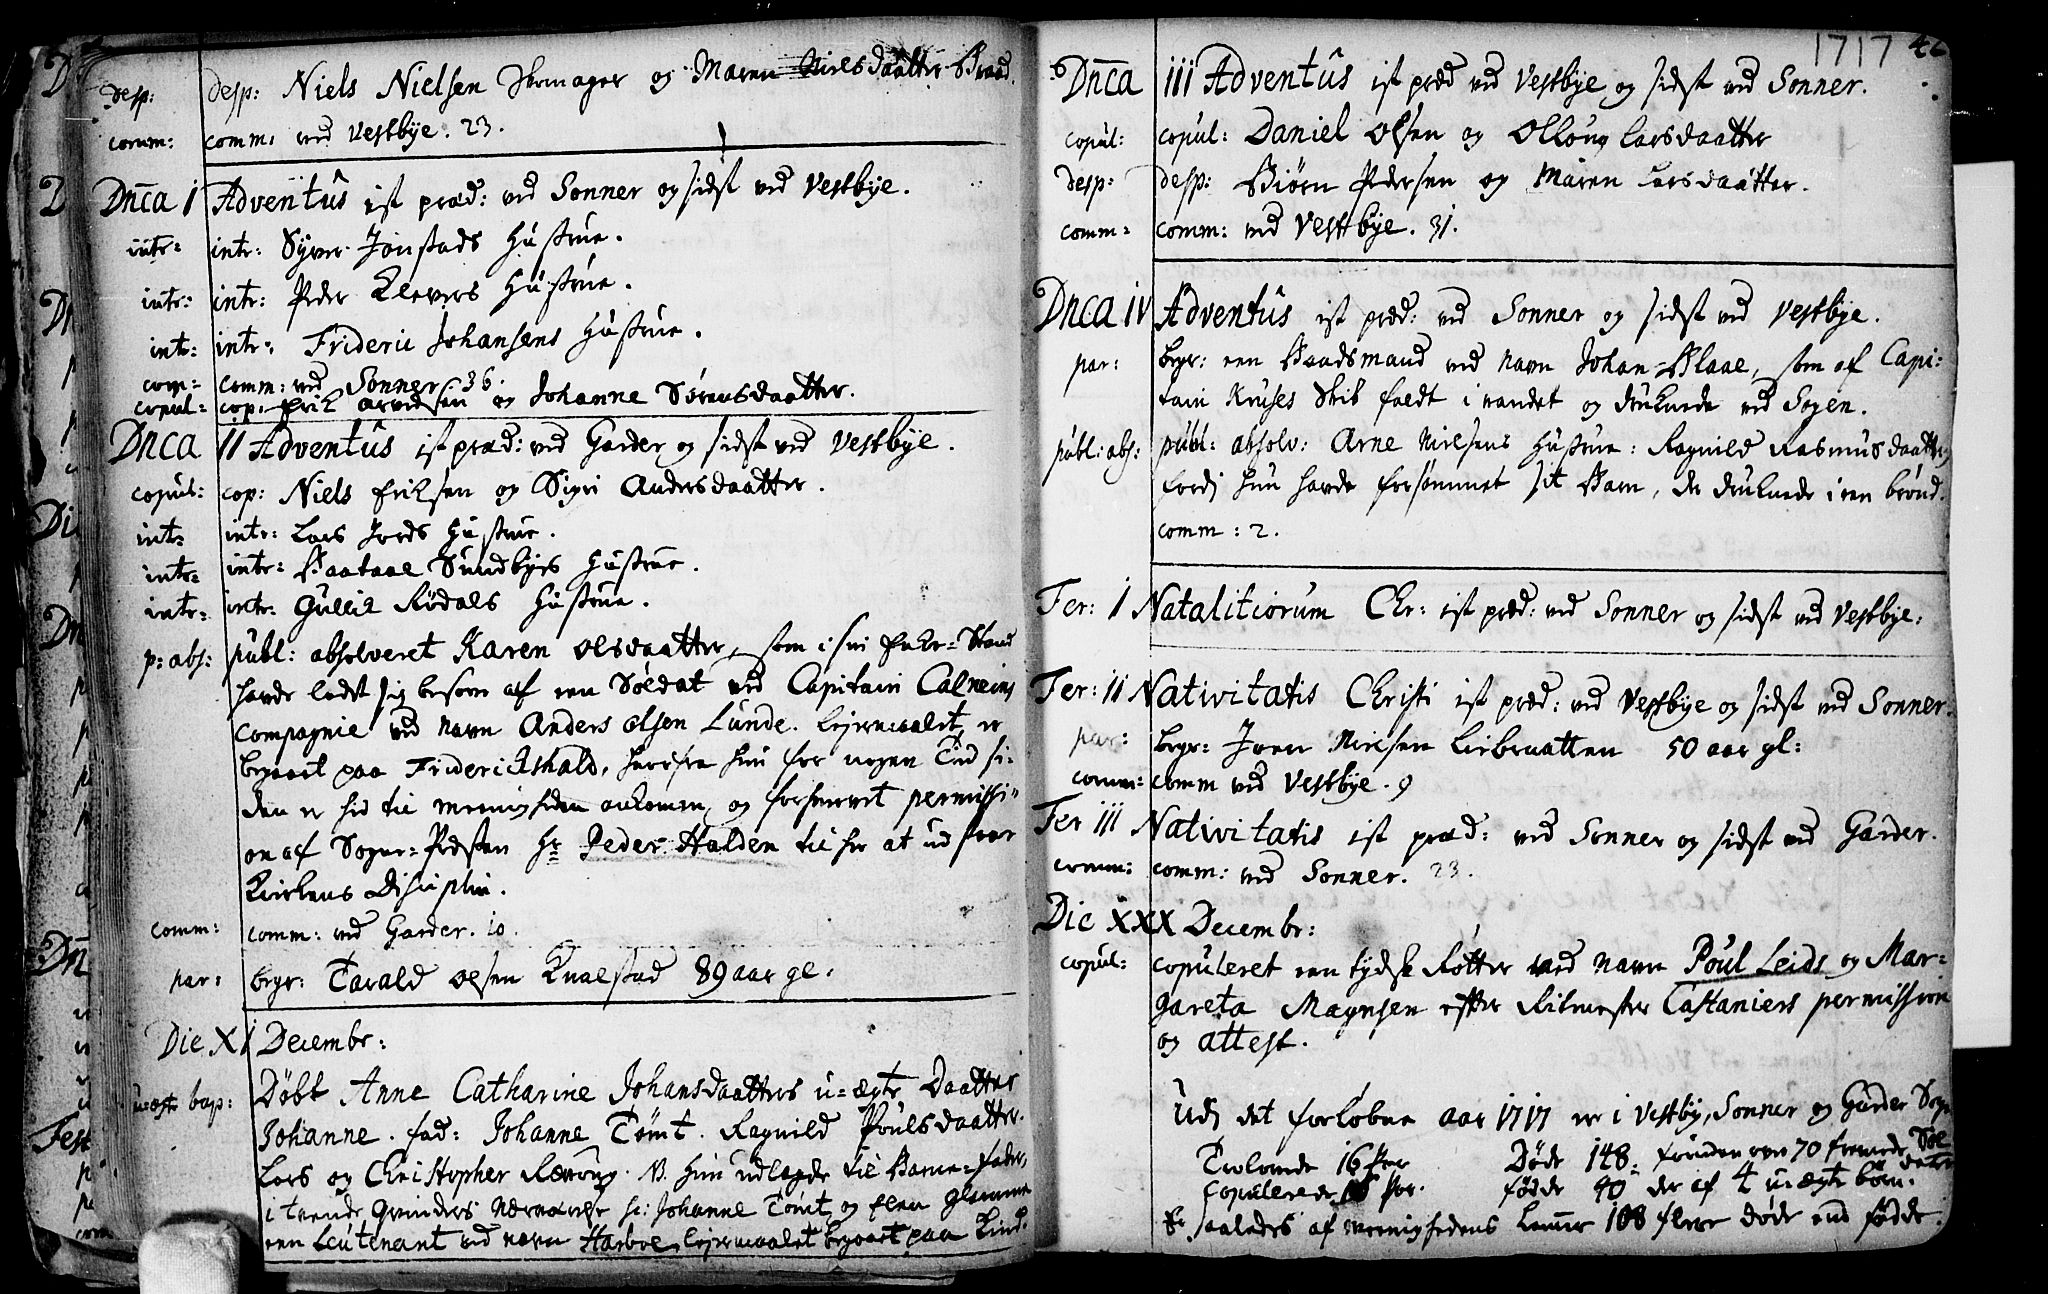 desp: desp: Niels Nielsen Skomager og Maren Nielsdaatter
comm: comm: ved Vestbye. 23.
Dn̄ca I Adventûs ist præd: ved Sonner og sidst ved Vestbye.
intr: intr: Syver Jonstads Hustrue.
intr: intr: Peder Klevers Hustrue.
intr: intr: Frideric Johansens Hustrue.
com: comm: ved Sonner 36.
copul: cop: Erik Arvedsen og Johanne Sørensdaatter.
Dn̄ca II Adventûs ist præd: ved Garder og sidst ved Vestbye.
copul: cop: Niels Eriksen og Sigri Andersdaatter.
int: intr: Lars Jords Hustrue.
intr: intr: Sundbyes Hustrue.
intr: intr: Gullik Rødals Hustrue.
p: abs: publ: absolveret Karen Olsdaatter, som i sin Enke-Stand
havde ladt sig besove af een Soldat ved Capitain Calneins
Compagnie ved navn Anders Olsen Lunde. Lejermaalet er
begaaet paa Friderichshald, hvorfra hun for nogen Tid si-
den er hid til menigheden ankommen og forhvervet permissi-
on af Sogne-Præsten Hr Peder Halden til her at udstaae
Kirkens Disciplin.
comm: comm: ved Garder. 10.
par: begr: Tarald Olsen Knalstad 89 aar gl:
Die XI Decembr:
u-ægte bap: Døbt Anne Catharine Johansdaatters u-ægte Daatter
Johanne. fad: Johanne Tomt. Ragnild Poulsdaatter.
Lars og Christopher Rørvug. NB. hun udlagde til Barne-fader,
i trende Qvinders Nærværelse sc: Johanne Tomt og Elen Glenne
een Leutenant ved navn Harboe. Lejermaalet begaaet paa
1717
Dn̄ca III Adventûs ist præd ved Vestbye og sidst ved Sonner.
copul: copul: Daniel Olsen og Olloug Larsdaatter
desp: desp: Biørn Pedersen og Maren Larsdaatter.
comm: comm: ved Vestbye. 31.
Dnca IV Adventûs ist præd: ved Sonner og sidst ved Vestbye.
par: begr: een Baadsmand ved navn Johan Blaae, som af Capi-
tain Kruses Skib faldt i vandet og druknede ved Sogen.
publ: abs: publ: absolv: Arne Nielsens Hustrue: Ragnild Rasmusdaatter,
fordj hun havde forsømmet sit Barn, der druknede i een brønd.
comm: 2.
Fer: I Natalitiorum Chr: ist præd: ved Sonner og sidst ved Vestbye:
Fer: II Nativitatis Christi ist præd: ved Vestbye og sidst ved Sonner.
par: begr: Joen Nielsen 50 aar gl:
comm: comm ved Vestbye. 9
Fer III Nativitatis ist præd: ved Sonner og sidst ved Garder.
comm: comm: ved Sonner. 23.
Die XXX Decembr:
copul: copuleret een tydsk Røtter ved navn Poul Leids og Mar-
gareta Magnsen efter Ritmester Castaniers permission
og attest.
Udj det forløbne aar 1717 er i Vestby, Sonner og Garder Sogn
Trolovede 16 Par Døde 148: foruden een 70 fremede Sol-
Copulerede Par. fødde 40 der af 4 u-ægte børn. dater
Er saaledes af menighedens Lemmer 108 flere døde end fødde.